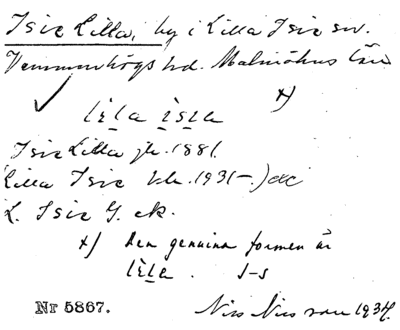 Isie Lilla, by i Lilla Isie sn.
Vemmenhögs hd. Malmöhus län
lìla ìsia x)
Isie Lilla jb. 1881.
Lilla Isie kb. 1931-.)
L. Isie G. ek.
x) Den genuina formen är
lìla. I-s
Nr 5867. Nils 1934.